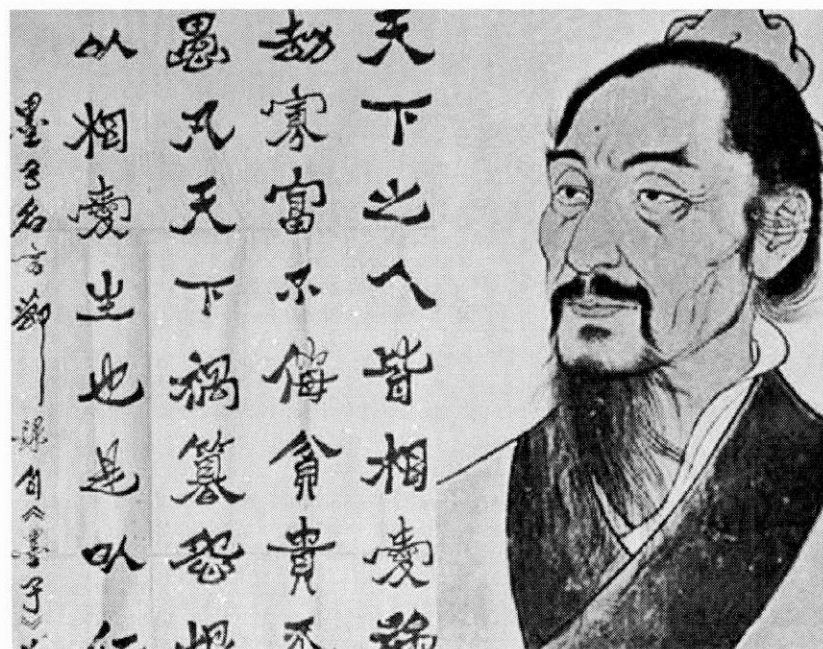 天下之人皆相愛強
劫寡富不侮貧貴不
愚凡天下禍篡怨恨
以相愛生也是以仁
墨子名言節録自《墨子》